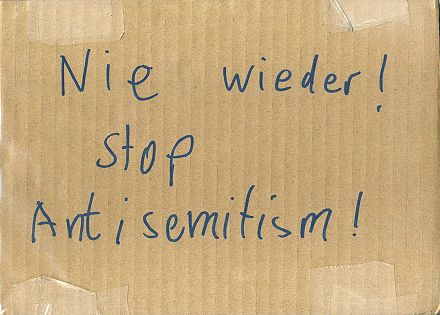 Nie wieder!
Stop
Antisemitism!